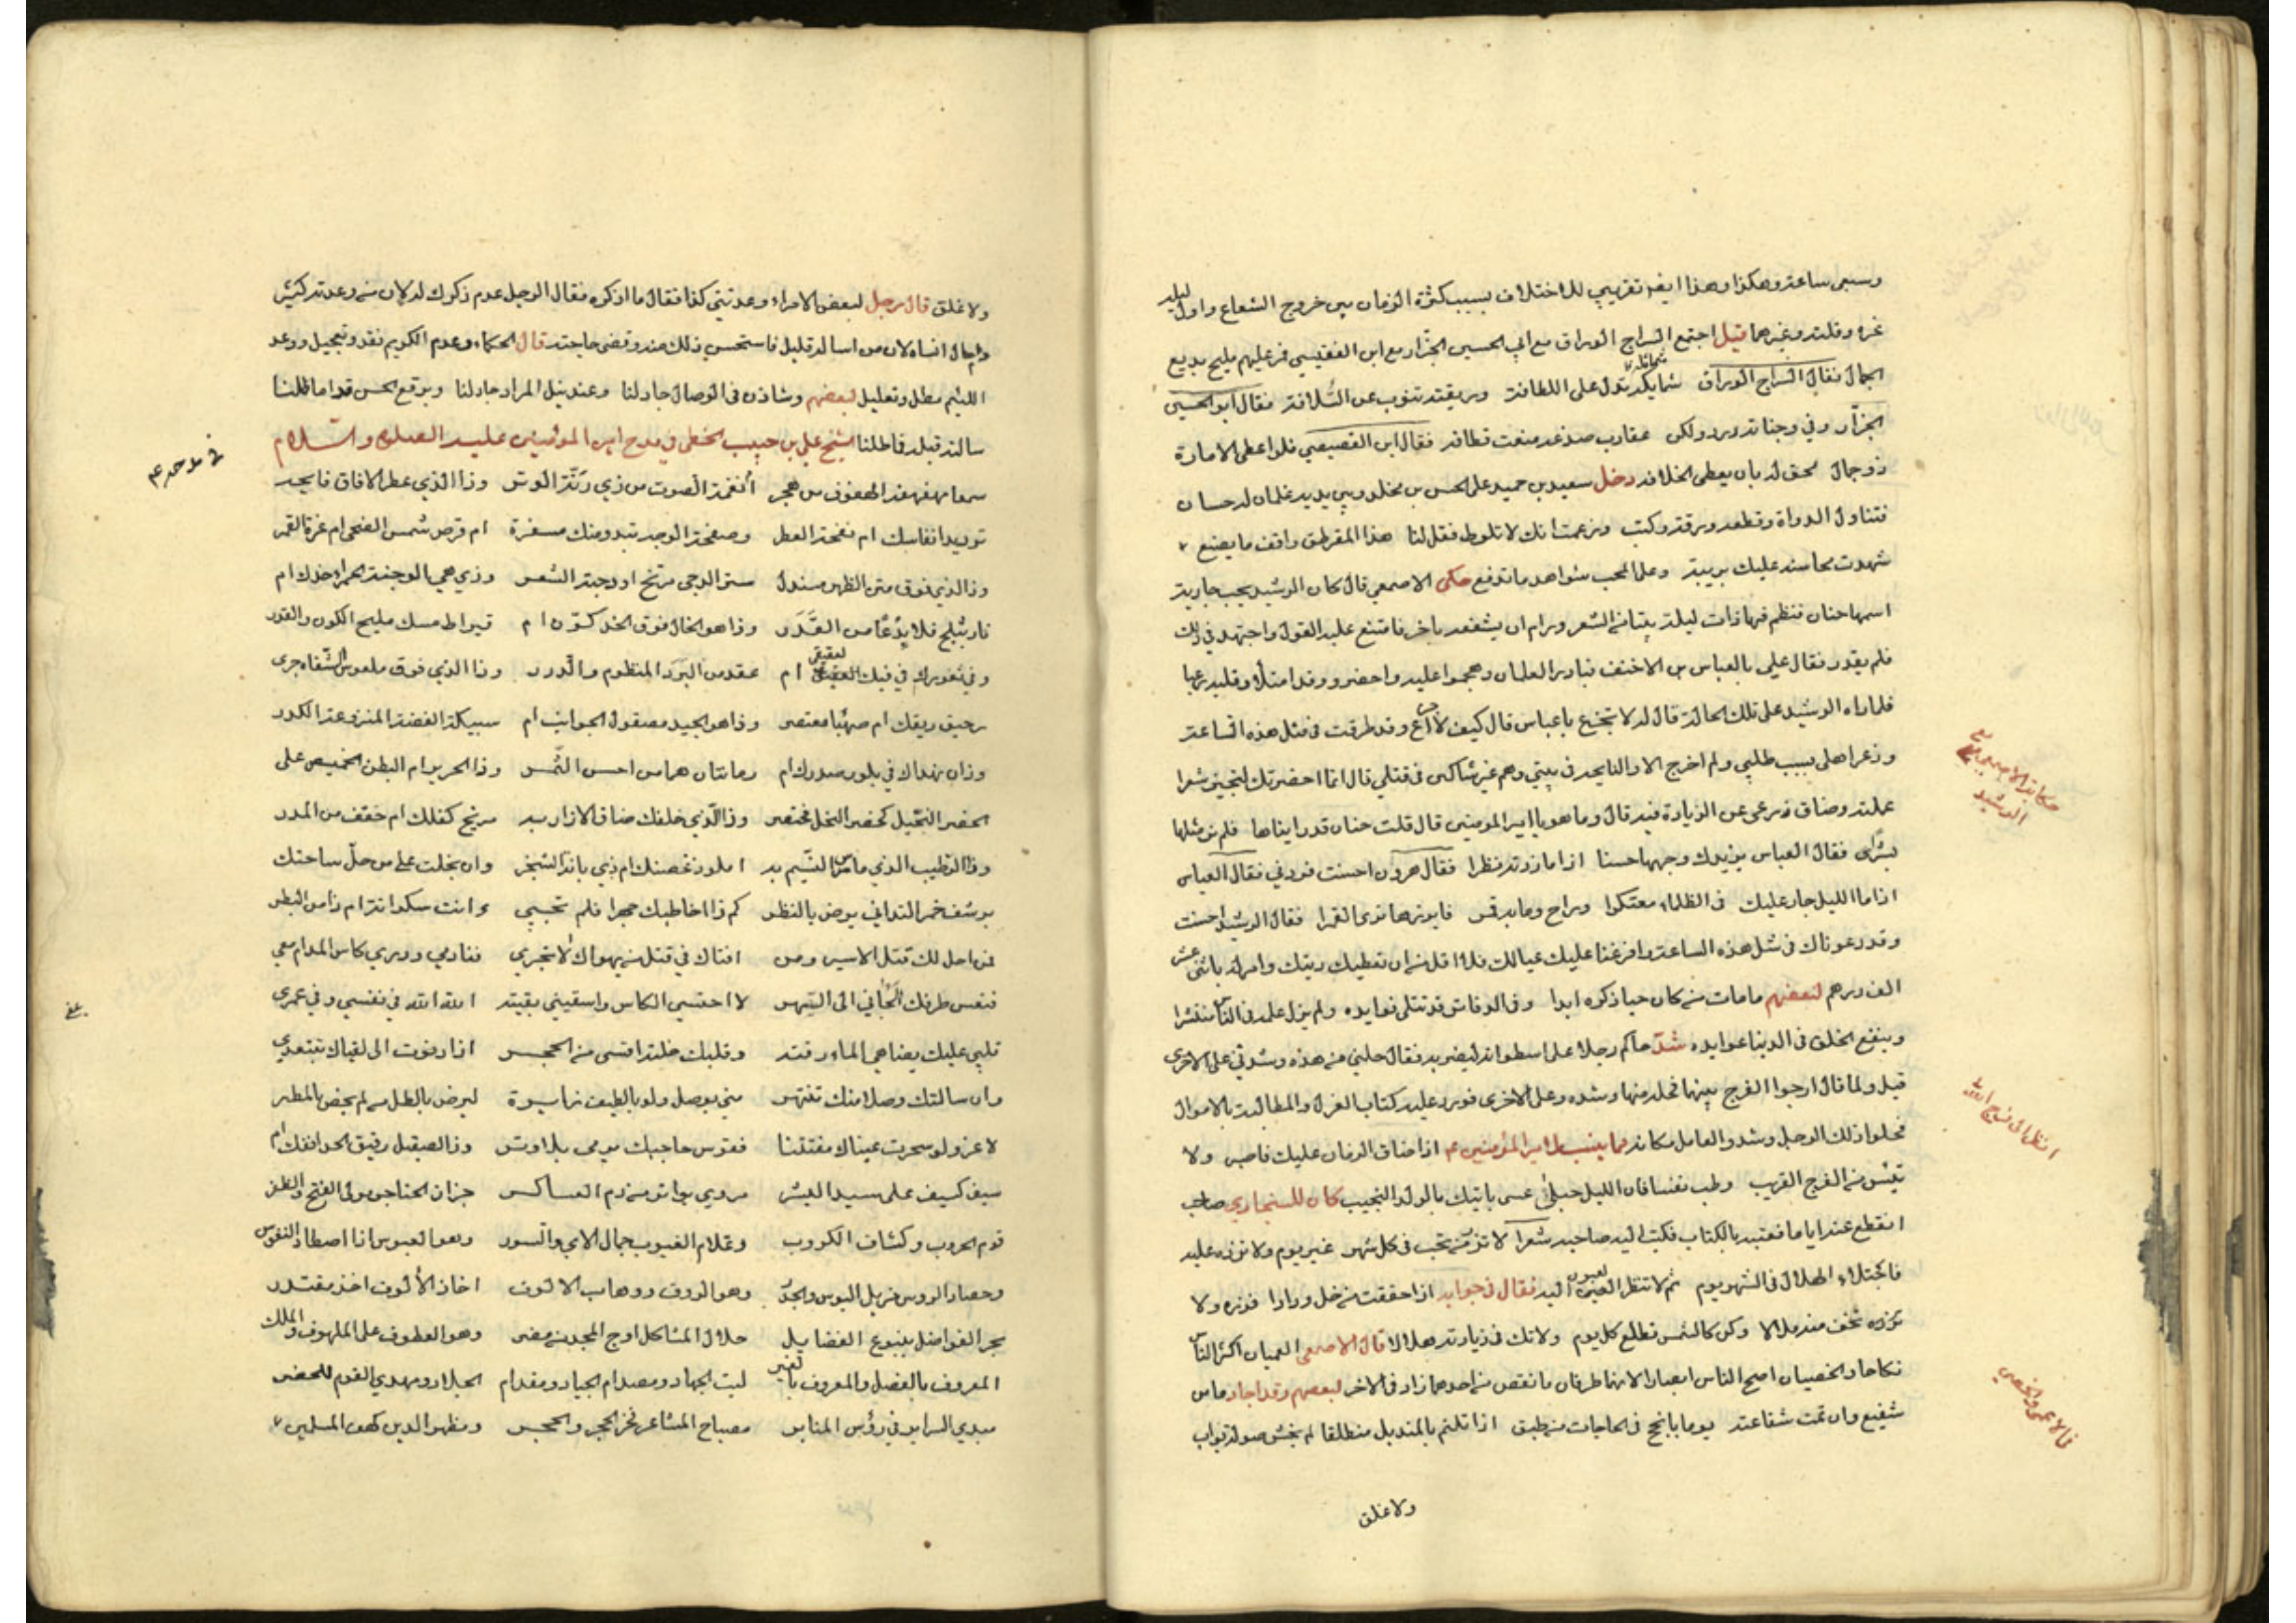 وسبعى ساعة وهكذا وهذا ايضا تقريبي للاختلاف بسبب كثرة الزمان بين خروج الشعاع واول ليلة
غره وقلته وغيرهما قيل اجتمع السراج الوراق مع ابي الحسين الجزار مع ابن الفقيسي فمر عليهم مليح بديع
الجمال فقال السراج الوراق شمايله تدل على اللطافة وريقته تنوب عن السلافة فقال ابو الحسين
الجزار وفي وجناته ورد ولكن عقارب صدغه منعت قطافه فقال ابن الفصيصي فلو اعطى الامارة
ذو جمال لحق له بان يعطى الخلافه دخل سعيد بن حميد على الحسن بن مخلد وبين يديه غلمان له حسان
فتناول الدواة وقطعه ورقة وكتب وزعمت انك لا تلوط فقل لنا هذا المقرطق واقف ما يصنع
شهدت محاسنه عليك بريبة وعلى المحب شواهد ما تدفع حكى الاصمعي قال كان الرشيد يحب جارية
اسمها حنان فنظم فيها ذات ليلة بيتا من الشعر ورام ان يشفعه باخر فامتنع عليه القول واجتهد في ذلك
فلم يقدر فقال علي بالعباس بن الاخنف فبادر الغلمان وهجموا عليه واحضروه وقد امتلأ قلبه رعبا
فلما راه الرشيد على تلك الحالة قال له لا تجزع يا عباس قال كيف لا اجزع وقد طرقت في مثل هذه الساعة
وذعر اهلى بسبب طلبي ولم اخرج الا والنايحة في بيتي وهم غير شاكين في قتلي قال انما احضرتك لتجيز شعرا
عملته وضاق ذرعى عن الزيادة فيه قال وما هو يا امير المومنين قال قلت حنان قد رايناها فلم نر مثلها
بشرا فقال العباس يزيدك وجهها حسنا اذا ما زدته نظرا فقال هرون احسنت فزدني فقال العباس
اذا ما الليل جار عليك في الظلماء معتكرا وراح وما به قمر فابرزها ترى القمرا فقال الرشيد احسنت
وقد دعوناك في مثل هذه الساعة وافزعنا عليك عيالك فلا اقل من ان نعطيك ديتك وامر له باثنى عشر
الف درهم لبعضهم ما مات من كان حيا ذكره ابدا وفي الدفاتر قد تتلى فوايده ولم يزل علمه في الناس منتشرا
وينفع الخلق في الدنيا عوايده شد حاكم رجلا على اسطوانة ليضربه فقال حلني من هذه وشدني على الاخرى
قيل ولم قال ارجوا الفرج بينهما فحله منها وشده وعلى الاخرى فورد عليه كتاب العزل والمطالبة بالاموال
فحلوا ذلك الرجل وشدو العامل مكانه مما ينسب لامير المؤمنين ع اذا ضاق الزمان عليك فاصبر ولا
تيئس من الفرج القريب وطب نفسا فان الليل حبلى عسى ياتيك بالولد النجيب كان للسنجاري صاحب
انقطع عنه اياما فعتبه بالكتاب فكتب اليه صاحبه شعرا لا تزر من تحب في كل شهر غير يوم ولا تزده عليه
فاجتلاء الهلال في الشهر يوم ثم لا تنظر العيون اليه فقال في جوابه اذا حققت من خل ودادا فزره ولا
تزره تخف منه ملالا وكن كالشمس تطلع كل يوم ولا تك في زيارته هلالا قال الاصمعي العميان اكثر الناس
نكاحا والخصيان اصح الناس ابصارا لانهما طرفان ما نقص من احدهما زاد في الاخر لبعضهم وقد اجاد ما من
شفيع وان تمت شفاعته يوما بانجح في الحاجات من طبق اذا تلثم بالمنديل منطلقا لم يخش صولة بواب
ولا غلق
حكاية الاصمعي مع
الرشيد
انظر الى فرج الله
في الاعمى والخصي
ولا غلق قال رجل لبعض الامراء وعدتني كذا فقال ما اذكره فقال الرجل عدم ذكرك له لان من وعدته كثير
وانا لا انساه لان من اساله قليل فاستحسن ذلك منه وقضى حاجته قال الحكماء وعد الكريم نقد وتعجيل ووعد
اللئيم مطل وتعليل لبعضهم وشاذن في الوصال جاد لنا وعند نيل المراد جاد لنا وبرقع الحسن قد اماط لنا
سالته قبلة فماطلنا الشيخ علي بن حبيب الخطي في مدح امير المؤمنين عليه الصلوة والسلام
في مدحه ع
أنغمة الصوت من ذي رنة الوتر وذا الذي عطر الافاق فايحه
توريد انفاسك ام نفحة العطر وصفحة الوجه تبدو منك مسفرة ام قرص شمس الضحى ام غرة القمر
وذا الذي فوق متن الظهر منسدل ستر الدجى مرتخ او دجنة الشعر وذي هي الوجنة الحمراء خدك ام
نار تثلج فلا بدعا من القدر وذا هو الخال فوق الخد كون ام قيراط مسك مليح الكون والقدر
وفي ثغورك في فيك العقيقي ام عقد من البرد المنظوم والدرر وذا الذي فوق ملعوس الشفاه جرى
رحيق ريقك ام صهبا معتصر وذا هو الجيد مصقول الجوانب ام سبيكة الفضة المنزوعة الكدر
وذان نهداك في بلور صدرك ام رمانتان هما من احسن الثمر وذا الحرير ام البطن الخميص على
الخصر النحيل كخصر النحل مختصر وذا الذي خلفك ضاق الازار به مرتج كفلك ام حقف من المدر
وذا الرطيب الذي ماس النسيم به املود غصنك ام ذي بانة الشجر وان بخلت على من حل ساحتك
يرشف خمر التداني يرض بالنظر كم ذا اخاطبك جهرا فلم تجبي ء انت سكرانة ام ذا من البطر
فمن احل لك قتل الاسير ومن افتاك في قتل من يهواك لا تجري فنادمي وديري كاس المدام معي
فنعس طرفك الجاني الى السهر لا احتسي الكاس واسقيني بقيته الله الله في نفسي وفي عمري
قلبي عليك يضاهي الماء رقته وقلبك خلته اقسى من الحجر اذا دنوت الى لقياك تبتعدي
وان سالتك وصلا منك تنتهر مني بوصل ولو بالطيف زايرة ليرض بالطل من لم يحض بالمطر
لا غرو لو سحرت عيناك مقتلنا فقوس حاجبك يرمى بلا وتر وذا الصيقل رقيق الحد انفك ام
سيف كسيف على سيد البشر مردي بواتره من دم العساكر جزار الحناجر مولى الفتح والظفر
قوم الحروب وكشاف الكروب وعلام الغيوب جمال الاي والسور وهو العبوس اذا اصطاد النفوس
وحصاد الروس مزيل البوس والجد وهو الروف ووهاب الالوف اخاذ الألوف اخذ مقتدر
بحر الفواضل ينبوع الفضايل حلال المشاكل اوج المجد من مضر وهو العطوف على الملهوف والملك
المعروف بالفضل والمعروف بالغير ليث الجهاد ومصدام الجياد ومقدام الجلاد ومهدي القوم للحضر
مبدي السراير في رؤس المنابر مصباح المشاعر فخر الحجر والحجر ومظهر الدين كهف المسلمين